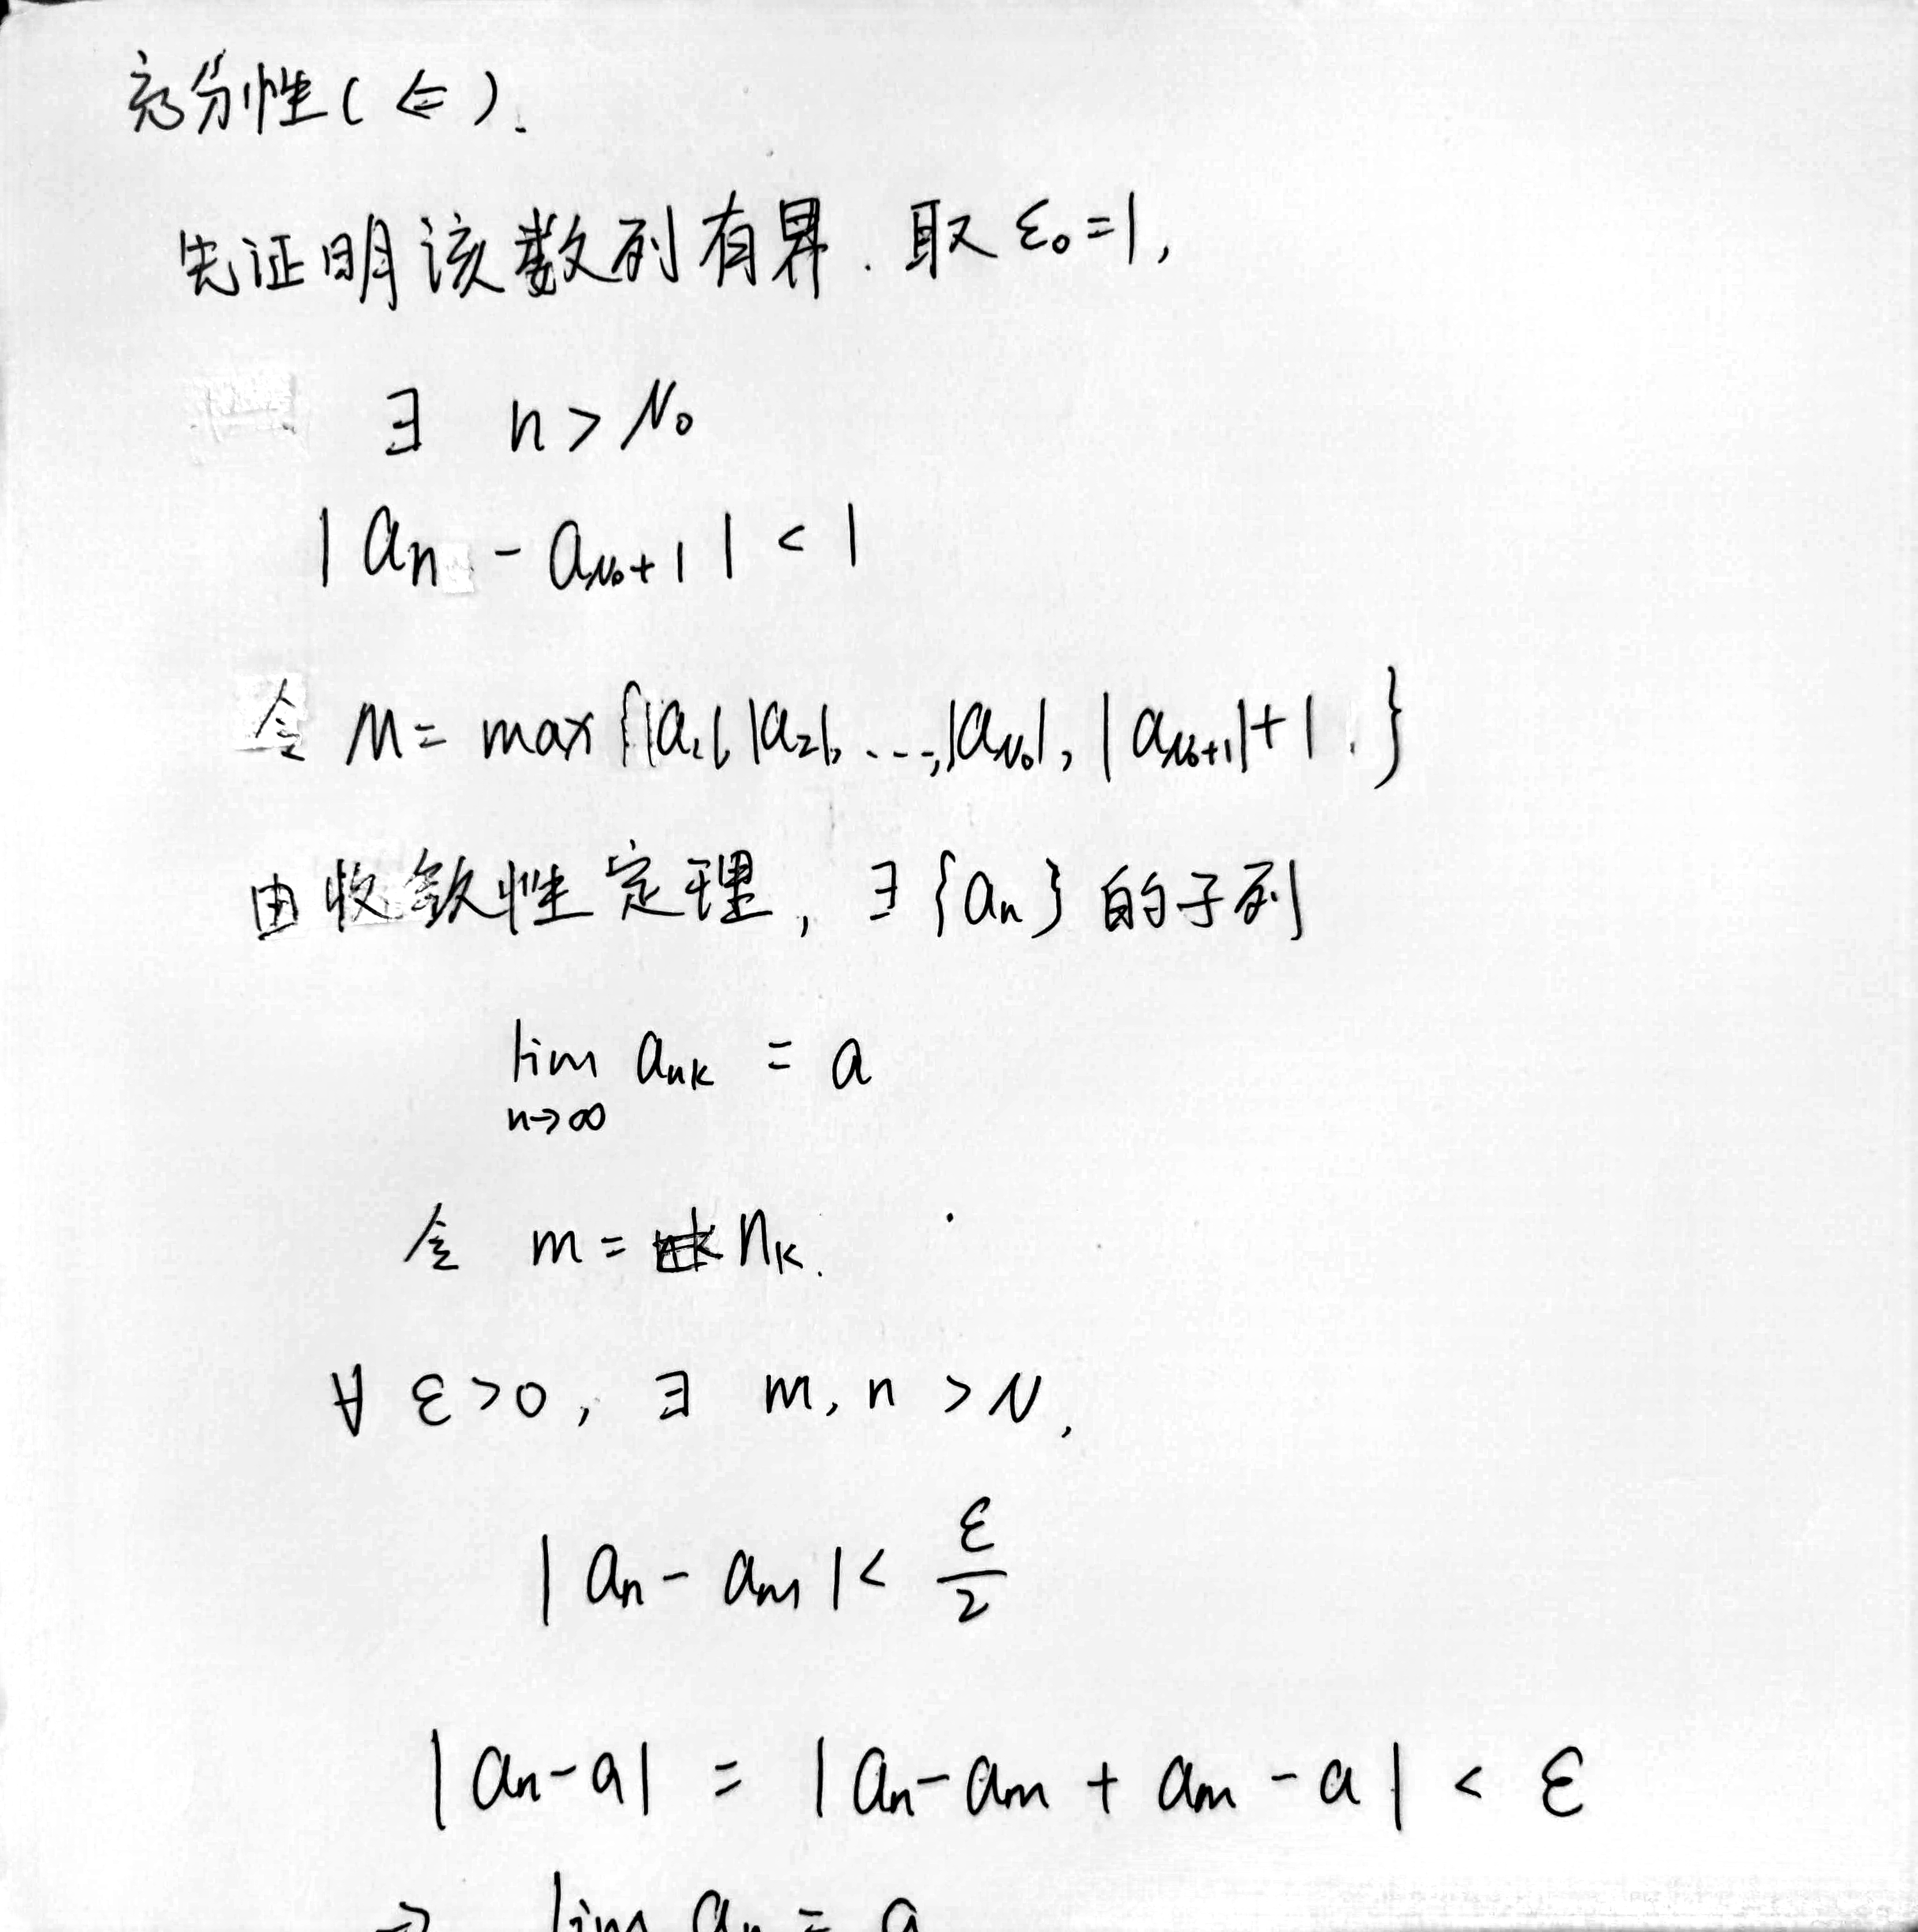 充分性(⇐).
先证明该数列有界. 取 ε₀=1,
∃ n > N₀
|aₙ - a_{N₀+1}| < 1
令 M = max{|a₁|, |a₂|, ..., |a_{N₀}|, |a_{N₀+1}|+1.}
由收敛性定理, ∃{aₙ}的子列
lim a_{nk} = a
n→∞
令 m = n_k.
∀ ε>0, ∃ m, n > N,
|aₙ - aₘ| < ε/2
|aₙ - a| = |aₙ - aₘ + aₘ - a| < ε
→ lim aₙ = a